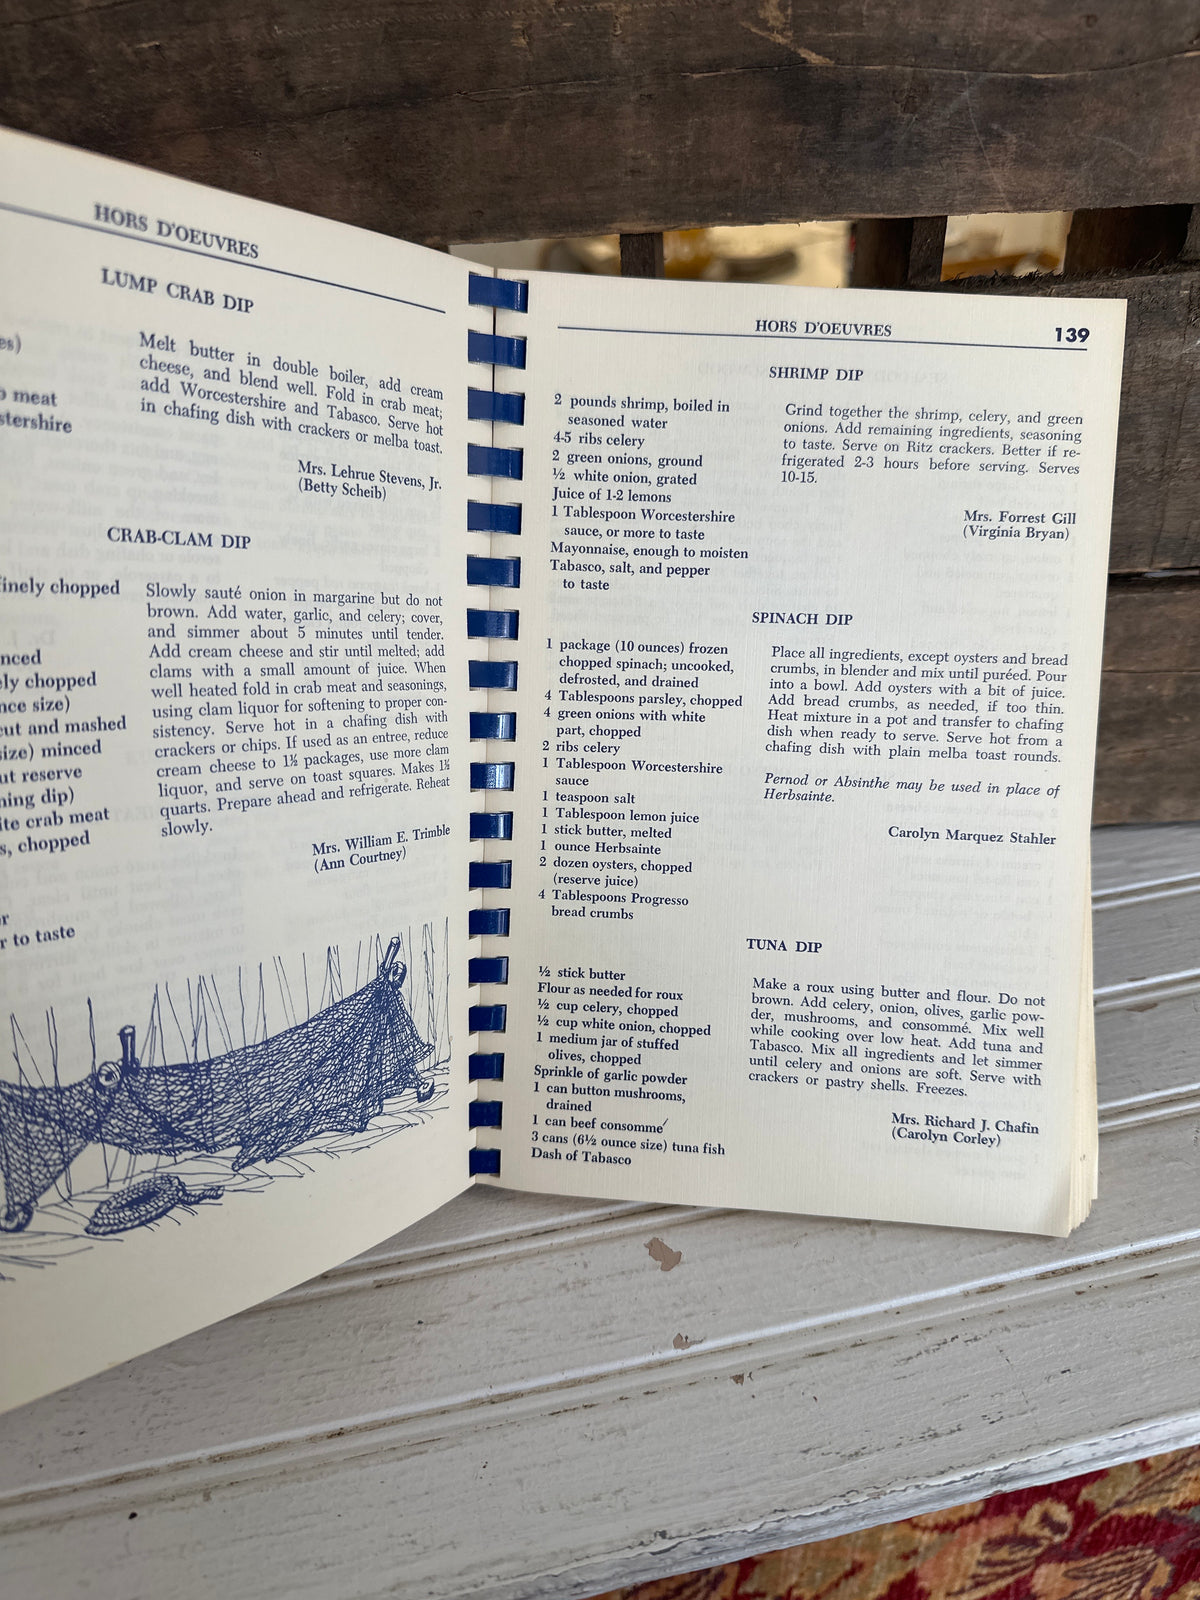 HORS D'OEUVRES
LUMP CRAB DIP
es)
meat
stershire
Melt butter in double boiler, add cream
cheese, and blend well. Fold in crab meat;
add Worcestershire and Tabasco. Serve hot
in chafing dish with crackers or melba toast.
Mrs. Lehrue Stevens, Jr.
(Betty Scheib)
CRAB-CLAM DIP
finely chopped
nced
ely chopped
nce size)
cut and mashed
size) minced
ut reserve
ning dip)
ite crab meat
s, chopped
r
r to taste
Slowly sauté onion in margarine but do not
brown. Add water, garlic, and celery; cover,
and simmer about 5 minutes until tender.
Add cream cheese and stir until melted; add
clams with a small amount of juice. When
well heated fold in crab meat and seasonings,
using clam liquor for softening to proper con-
sistency. Serve hot in a chafing dish with
crackers or chips. If used as an entree, reduce
cream cheese to 1½ packages, use more clam
liquor, and serve on toast squares. Makes 1½
quarts. Prepare ahead and refrigerate. Reheat
slowly.
Mrs. William E. Trimble
(Ann Courtney)
HORS D'OEUVRES 139
SHRIMP DIP
2 pounds shrimp, boiled in
seasoned water
4-5 ribs celery
2 green onions, ground
½ white onion, grated
Juice of 1-2 lemons
1 Tablespoon Worcestershire
sauce, or more to taste
Mayonnaise, enough to moisten
Tabasco, salt, and pepper
to taste
Grind together the shrimp, celery, and green
onions. Add remaining ingredients, seasoning
to taste. Serve on Ritz crackers. Better if re-
frigerated 2-3 hours before serving. Serves
10-15.
Mrs. Forrest Gill
(Virginia Bryan)
SPINACH DIP
1 package (10 ounces) frozen
chopped spinach; uncooked,
defrosted, and drained
4 Tablespoons parsley, chopped
4 green onions with white
part, chopped
2 ribs celery
1 Tablespoon Worcestershire
sauce
1 teaspoon salt
1 Tablespoon lemon juice
1 stick butter, melted
1 ounce Herbsainte
2 dozen oysters, chopped
(reserve juice)
4 Tablespoons Progresso
bread crumbs
Place all ingredients, except oysters and bread
crumbs, in blender and mix until puréed. Pour
into a bowl. Add oysters with a bit of juice.
Add bread crumbs, as needed, if too thin.
Heat mixture in a pot and transfer to chafing
dish when ready to serve. Serve hot from a
chafing dish with plain melba toast rounds.
Pernod or Absinthe may be used in place of
Herbsainte.
Carolyn Marquez Stahler
TUNA DIP
½ stick butter
Flour as needed for roux
½ cup celery, chopped
½ cup white onion, chopped
1 medium jar of stuffed
olives, chopped
Sprinkle of garlic powder
1 can button mushrooms,
drained
1 can beef consommé
3 cans (6½ ounce size) tuna fish
Dash of Tabasco
Make a roux using butter and flour. Do not
brown. Add celery, onion, olives, garlic pow-
der, mushrooms, and consommé. Mix well
while cooking over low heat. Add tuna and
Tabasco. Mix all ingredients and let simmer
until celery and onions are soft. Serve with
crackers or pastry shells. Freezes.
Mrs. Richard J. Chafin
(Carolyn Corley)